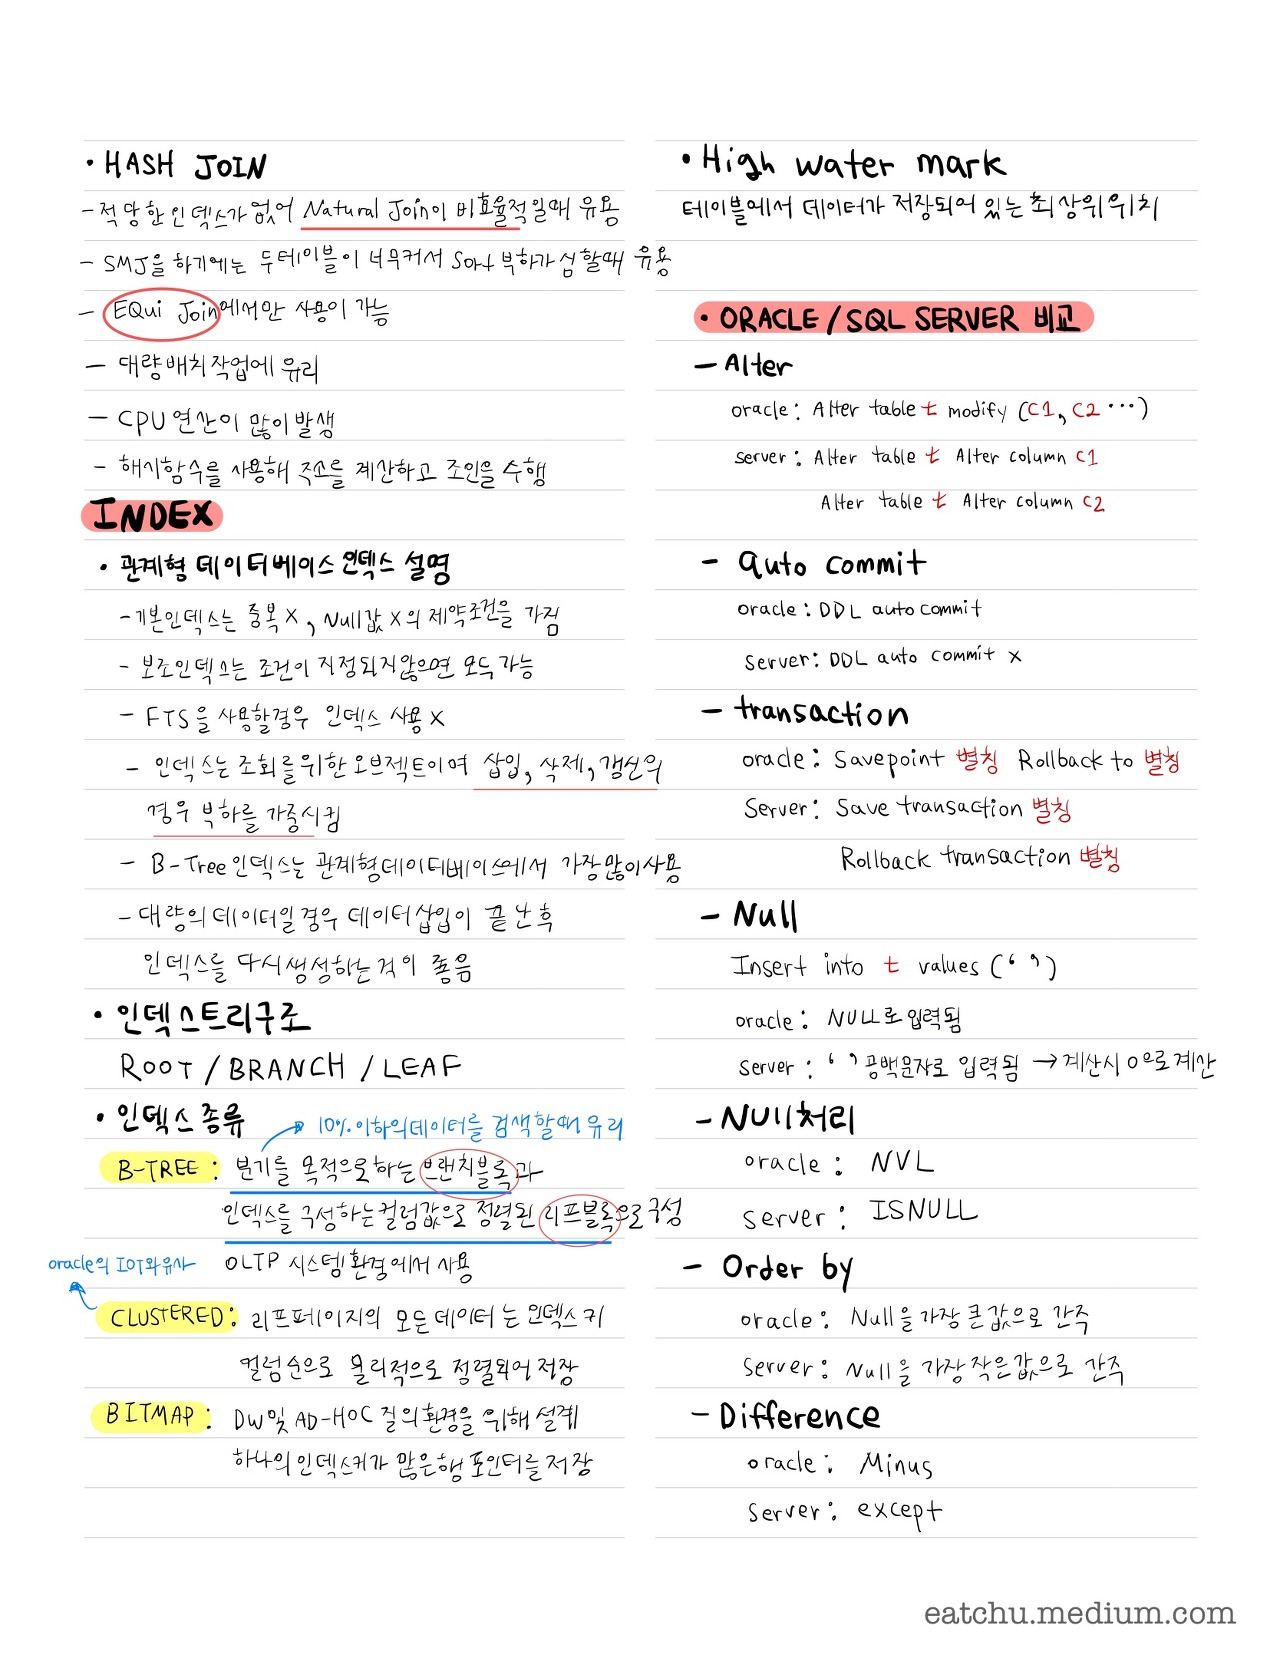 • HASH JOIN
- 적당한 인덱스가 없어 Natural Join이 비효율적일때 유용
- SMJ을 하기에는 두테이블이 너무커서 Sort 부하가 심할때 유용
- EQui Join에서만 사용이 가능
- 대량배치작업에 유리
- CPU 연산이 많이 발생
- 해시함수를 사용해 주소를 계산하고 조인을 수행
INDEX
• 관계형 데이터베이스 인덱스 설명
- 기본인덱스는 중복X, Null값X의 제약조건을 가짐
- 보조인덱스는 조건이 지정되지않으면 모두가능
- FTS을 사용할경우 인덱스 사용X
- 인덱스는 조회를위한오브젝트이며 삽입, 삭제, 갱신의
경우 부하를 가중시킴
- B-Tree인덱스는 관계형데이터베이스에서 가장많이사용
- 대량의데이터일경우 데이터삽입이 끝난후
인덱스를 다시생성하는것이 좋음
• 인덱스트리구조
ROOT / BRANCH / LEAF
• 인덱스종류
10% 이하의데이터를 검색할때 유리
B-TREE: 분기를 목적으로하는 브랜치블록과
인덱스를 구성하는컬럼값으로 정렬된 리프블록으로구성
OLTP 시스템환경에서 사용
oracle의 IOT와유사
CLUSTERED: 리프페이지의 모든데이터는 인덱스키
컬럼순으로 물리적으로 정렬되어저장
BITMAP: DW및 AD-HOC 질의환경을 위해 설계
하나의인덱스키가 많은행 포인터를 저장
• High water mark
테이블에서 데이터가 저장되어 있는 최상위위치
• ORACLE/SQL SERVER 비교
- Alter
oracle: Alter table t modify (C1, C2 ...)
server: Alter table t Alter column C1
Alter table t Alter column C2
- auto commit
oracle: DDL auto commit
server: DDL auto commit x
- transaction
oracle: Savepoint 별칭 Rollback to 별칭
Server: Save transaction 별칭
Rollback transaction 별칭
- Null
Insert into t values (‘ ’)
oracle: NULL로입력됨
server: ‘ ’ 공백문자로 입력됨 → 계산시 0으로계산
- NUll처리
oracle: NVL
server: ISNULL
- Order by
oracle: Null을가장큰값으로 간주
Server: Null을 가장작은값으로 간주
- Difference
oracle: Minus
Server: except
eatchu.medium.com